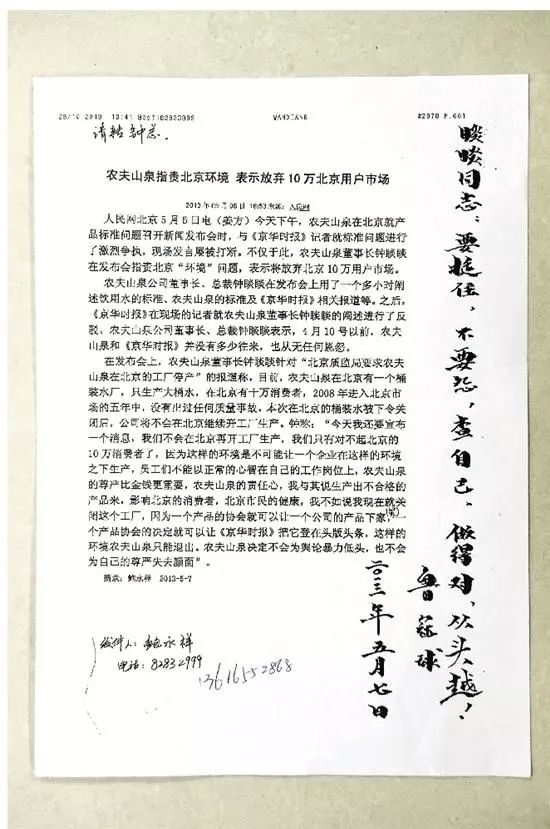 13:41
WANXIANG
P.001
请转钟总.
农夫山泉指责北京环境 表示放弃 10 万北京用户市场
2013年05月06日 16:53来源：人民网
人民网北京 5 月 6 日电（姜方）今天下午，农夫山泉在北京就产
品标准问题召开新闻发布会时，与《京华时报》记者就标准问题进行
了激烈争执，现场发言屡被打断。不仅于此，农夫山泉董事长钟睒睒
在发布会指责北京“环境”问题，表示将放弃北京 10 万用户市场。
农夫山泉公司董事长、总裁钟睒睒在发布会上用了一个多小时阐
述饮用水的标准、农夫山泉的标准及《京华时报》相关报道等。之后，
《京华时报》在现场的记者就农夫山泉董事长钟睒睒的阐述进行了反
驳。农夫山泉公司董事长、总裁钟睒睒表示，4 月 10 号以前，农夫
山泉和《京华时报》并没有多少往来，也从无任何恩怨。
在发布会上，农夫山泉董事长钟睒睒针对“北京质监局要求农夫
山泉在北京的工厂停产”的报道称，目前，农夫山泉在北京有一个桶
装水厂，只生产大桶水，在北京有十万消费者，2008 年进入北京市
场的五年中，没有出过任何质量事故，本次在北京的桶装水被下令关
闭后，公司将不会在北京继续开工厂生产。钟称：“今天我还要宣布
一个消息，我们不会在北京再开工厂生产，我们只有对不起北京的
10 万消费者了，因为这样的环境是不可能让一个企业在这样的环境
之下生产，员工们不能以正常的心智在自己的工作岗位上，农夫山泉
的尊严比金钱更重要，农夫山泉的责任心，我与其说生产出不合格的
产品来，影响北京的消费者，北京市民的健康，我不如说我现在就关
闭这个工厂，因为一个产品的协会就可以让一个公司的产品下架，一
个产品协会的决定就可以让《京华时报》把它登在头版头条，这样的
环境农夫山泉只能退出。农夫山泉决定不会为舆论暴力低头，也不会
为自己的尊严失去颜面”。
摘录：鲍永祥 2013-5-7
发件人：鲍永祥
电话：82832999
13616552868
睒睒同志：要挺住，不要怨，查自己，做得对，从头越！
鲁冠球
二〇一三年五月七日